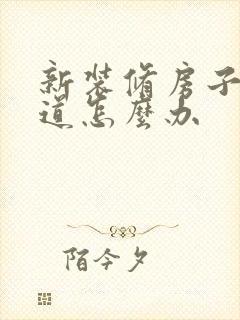 新装修房子
道怎麼办
陌今夕